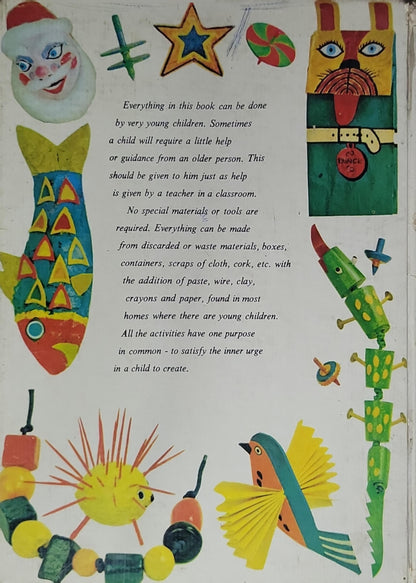 Everything in this book can be done
by very young children. Sometimes
a child will require a little help
or guidance from an older person. This
should be given to him just as help
is given by a teacher in a classroom.
No special materials or tools are
required. Everything can be made
from discarded or waste materials, boxes,
containers, scraps of cloth, cork, etc. with
the addition of paste, wire, clay,
crayons and paper, found in most
homes where there are young children.
All the activities have one purpose
in common - to satisfy the inner urge
in a child to create.